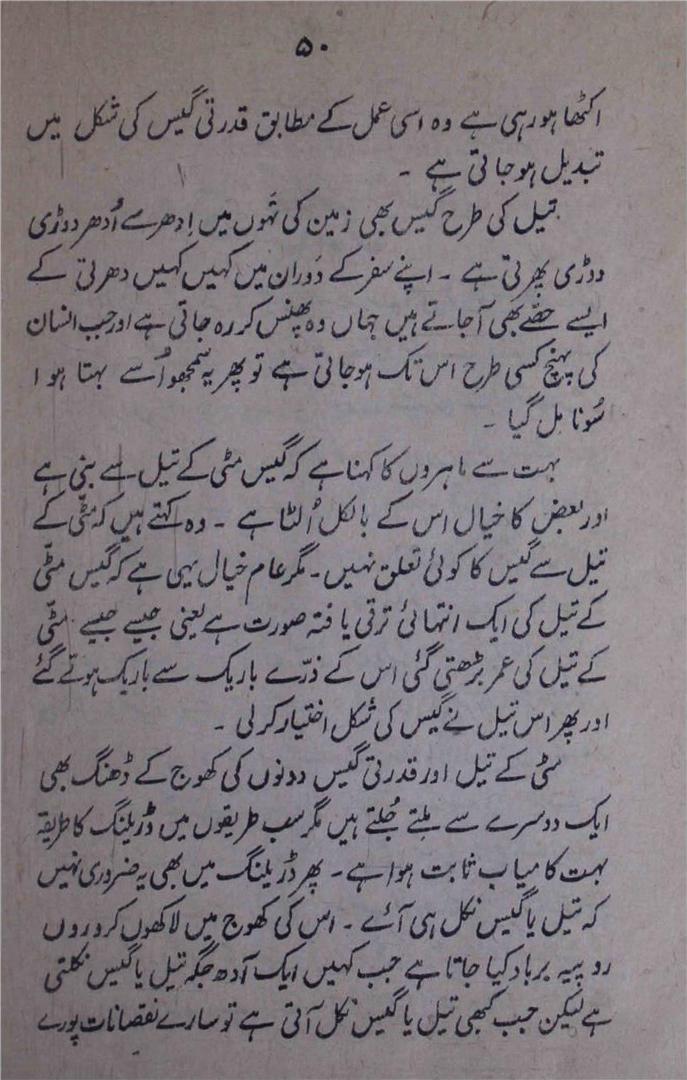 ۵۰
اکٹھا ہو رہی ہے وہ اسی عمل کے مطابق قدرتی گیس کی شکل میں
تبدیل ہو جاتی ہے ۔
تیل کی طرح گیس بھی زمین کی تہوں میں اِدھر سے اُدھر دوڑی
دوڑی پھرتی ہے ۔ اپنے سفر کے دَوران میں کہیں کہیں دھرتی کے
ایسے حصّے بھی آجاتے ہیں جہاں وہ پھنس کر رہ جاتی ہے اور جب انسان
کی پہنچ کسی طرح اس تک ہو جاتی ہے تو پھر یہ سمجھو اُسے بہتا ہوا
سُونا مِل گیا ۔
بہت سے ماہروں کا کہنا ہے کہ گیس مٹی کے تیل سے بنی ہے
اور بعض کا خیال اس کے بالکل اُلٹا ہے ۔ وہ کہتے ہیں کہ مٹّی کے
تیل سے گیس کا کوئی تعلق نہیں ۔ مگر عام خیال یہی ہے کہ گیس مٹّی
کے تیل کی ایک انتہائی ترقی یافتہ صورت ہے یعنی جیسے جیسے مٹّی
کے تیل کی عمر بڑھتی گئی اس کے ذرّے باریک سے باریک ہوتے گئے
اور پھر اس تیل نے گیس کی شکل اختیار کر لی ۔
مٹی کے تیل اور قدرتی گیس دونوں کی کھوج کے ڈھنگ بھی
ایک دوسرے سے ملتے جُلتے ہیں مگر سب طریقوں میں ڈریلنگ کا طریقہ
بہت کامیاب ثابت ہوا ہے ۔ پھر ڈریلنگ میں بھی یہ ضروری نہیں
کہ تیل یا گیس نکل ہی آئے ۔ اس کی کھوج میں لاکھوں کروروں
روپیہ برباد کیا جاتا ہے جب کہیں ایک آدھ جگہ تیل یا گیس نکلتی
ہے لیکن جب کبھی تیل یا گیس نکل آتی ہے تو سارے نقصانات پورے